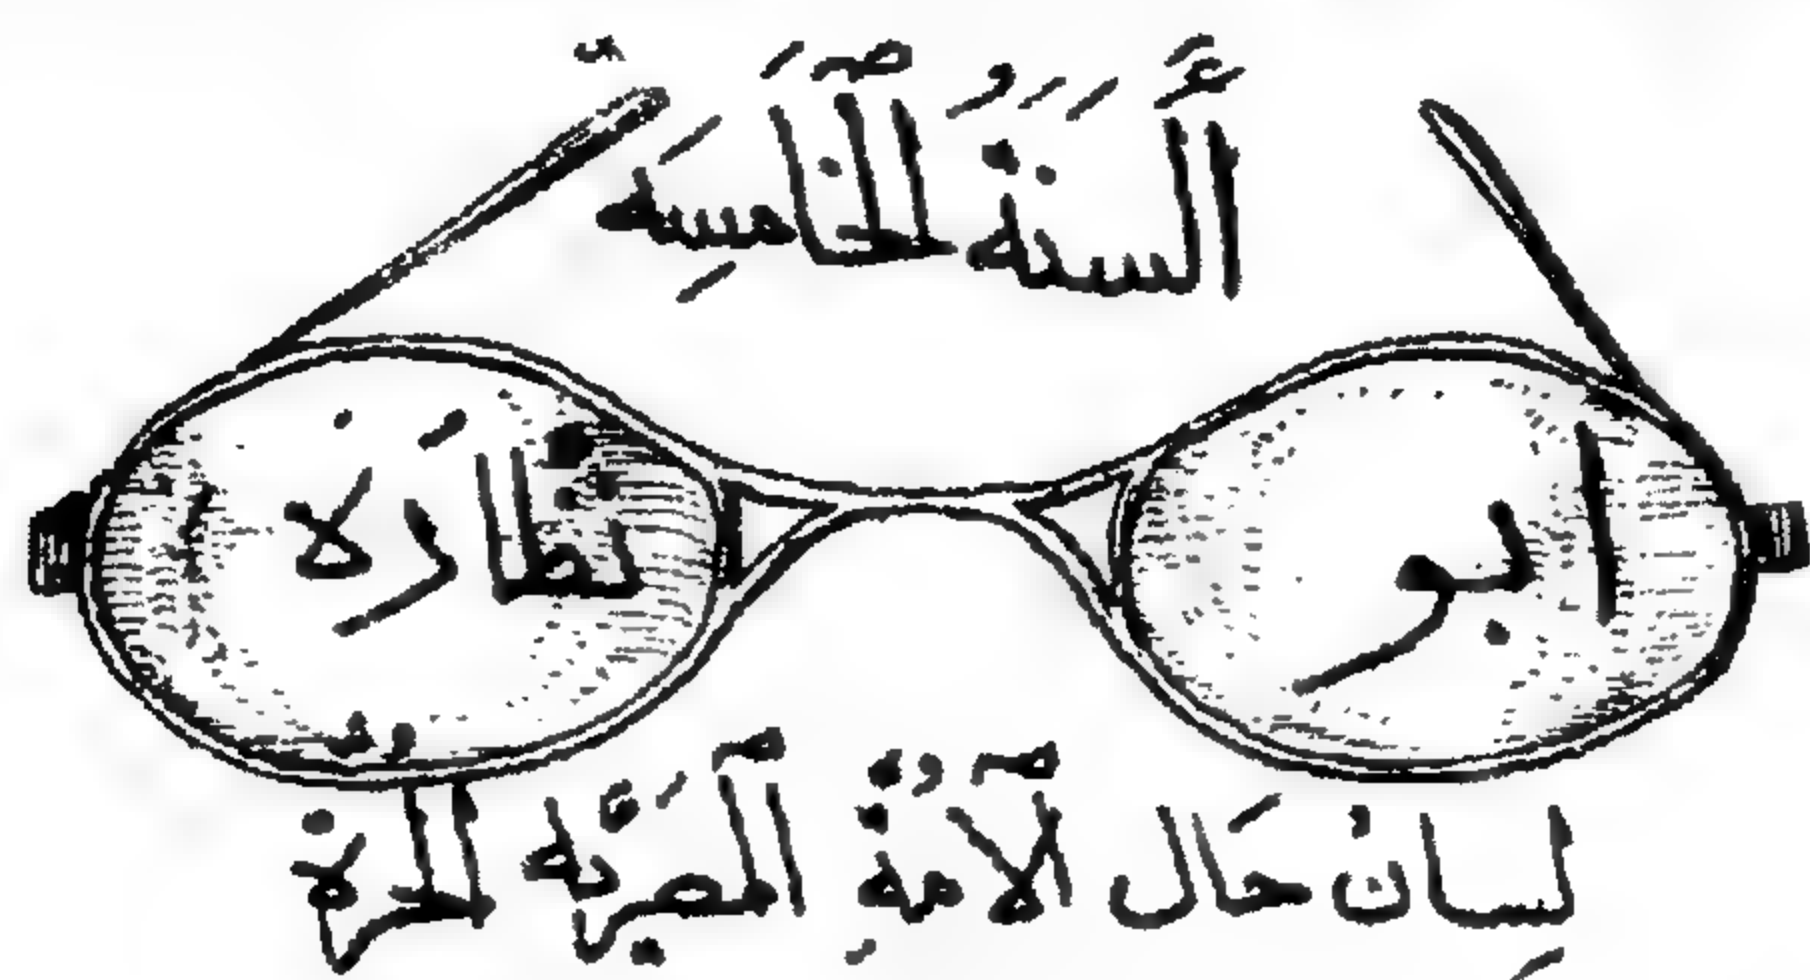 أَلسَنَةُ الخَامِسَة
ابو نظَّارَة
لِسانْ حَال الأمةِ المصريَّه الحرة